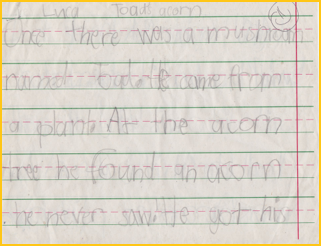 Lura Toad! acorn
Once there was a mushroom
named toad. He came from
a plant. At the acorn
tree he found an acorn
he never saw. He got his